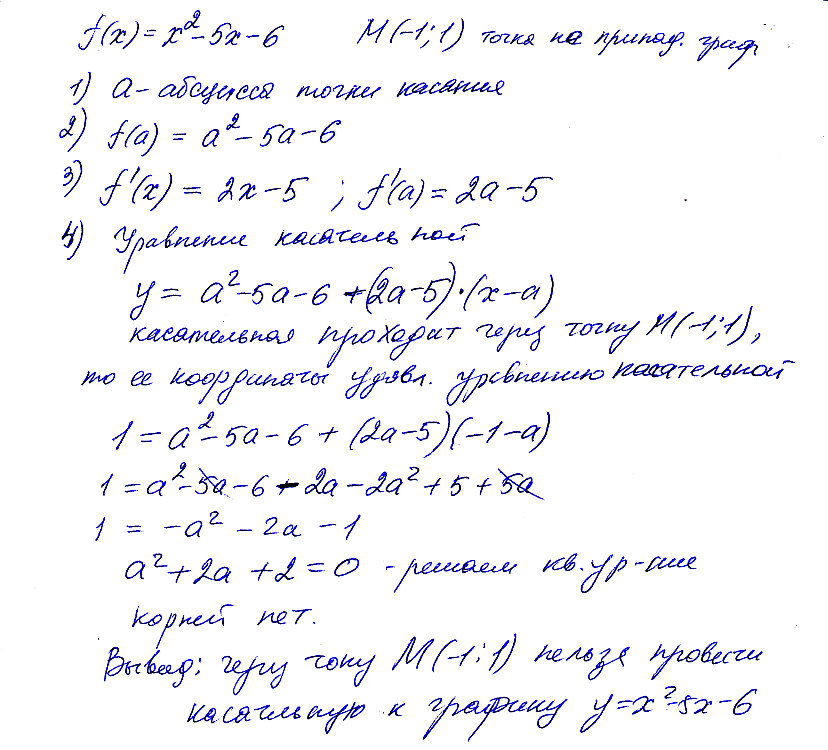 f(x) = x² - 5x - 6 M(-1; 1) точка не принад. граф
1) a - абсцисса точки касания
2) f(a) = a² - 5a - 6
3) f'(x) = 2x - 5 ; f'(a) = 2a - 5
4) Уравнение касательной
y = a² - 5a - 6 + (2a - 5) · (x - a)
касательная проходит через точку M(-1; 1),
то ее координаты удовл. уравнению касательной
1 = a² - 5a - 6 + (2a - 5)(-1 - a)
1 = a² - 5a - 6 - 2a - 2a² + 5 + 5a
1 = -a² - 2a - 1
a² + 2a + 2 = 0 - решаем кв. ур-ние
корней нет.
Вывод: через точку M(-1; 1) нельзя провести
касательную к графику y = x² - 5x - 6